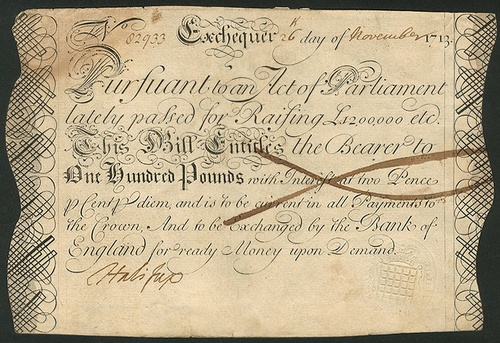 No 82933 Exchequer 26th day of November 1713.
Pursuant to an Act of Parliament
lately passed for Raising £1200,000 etc.
This Bill Entitles the Bearer to
One Hundred Pounds with Interest at two Pence
p Cent p diem, and is to be current in all Payments to
the Crown, And to be Exchanged by the Bank of
England for ready Money upon Demand.
Halifax